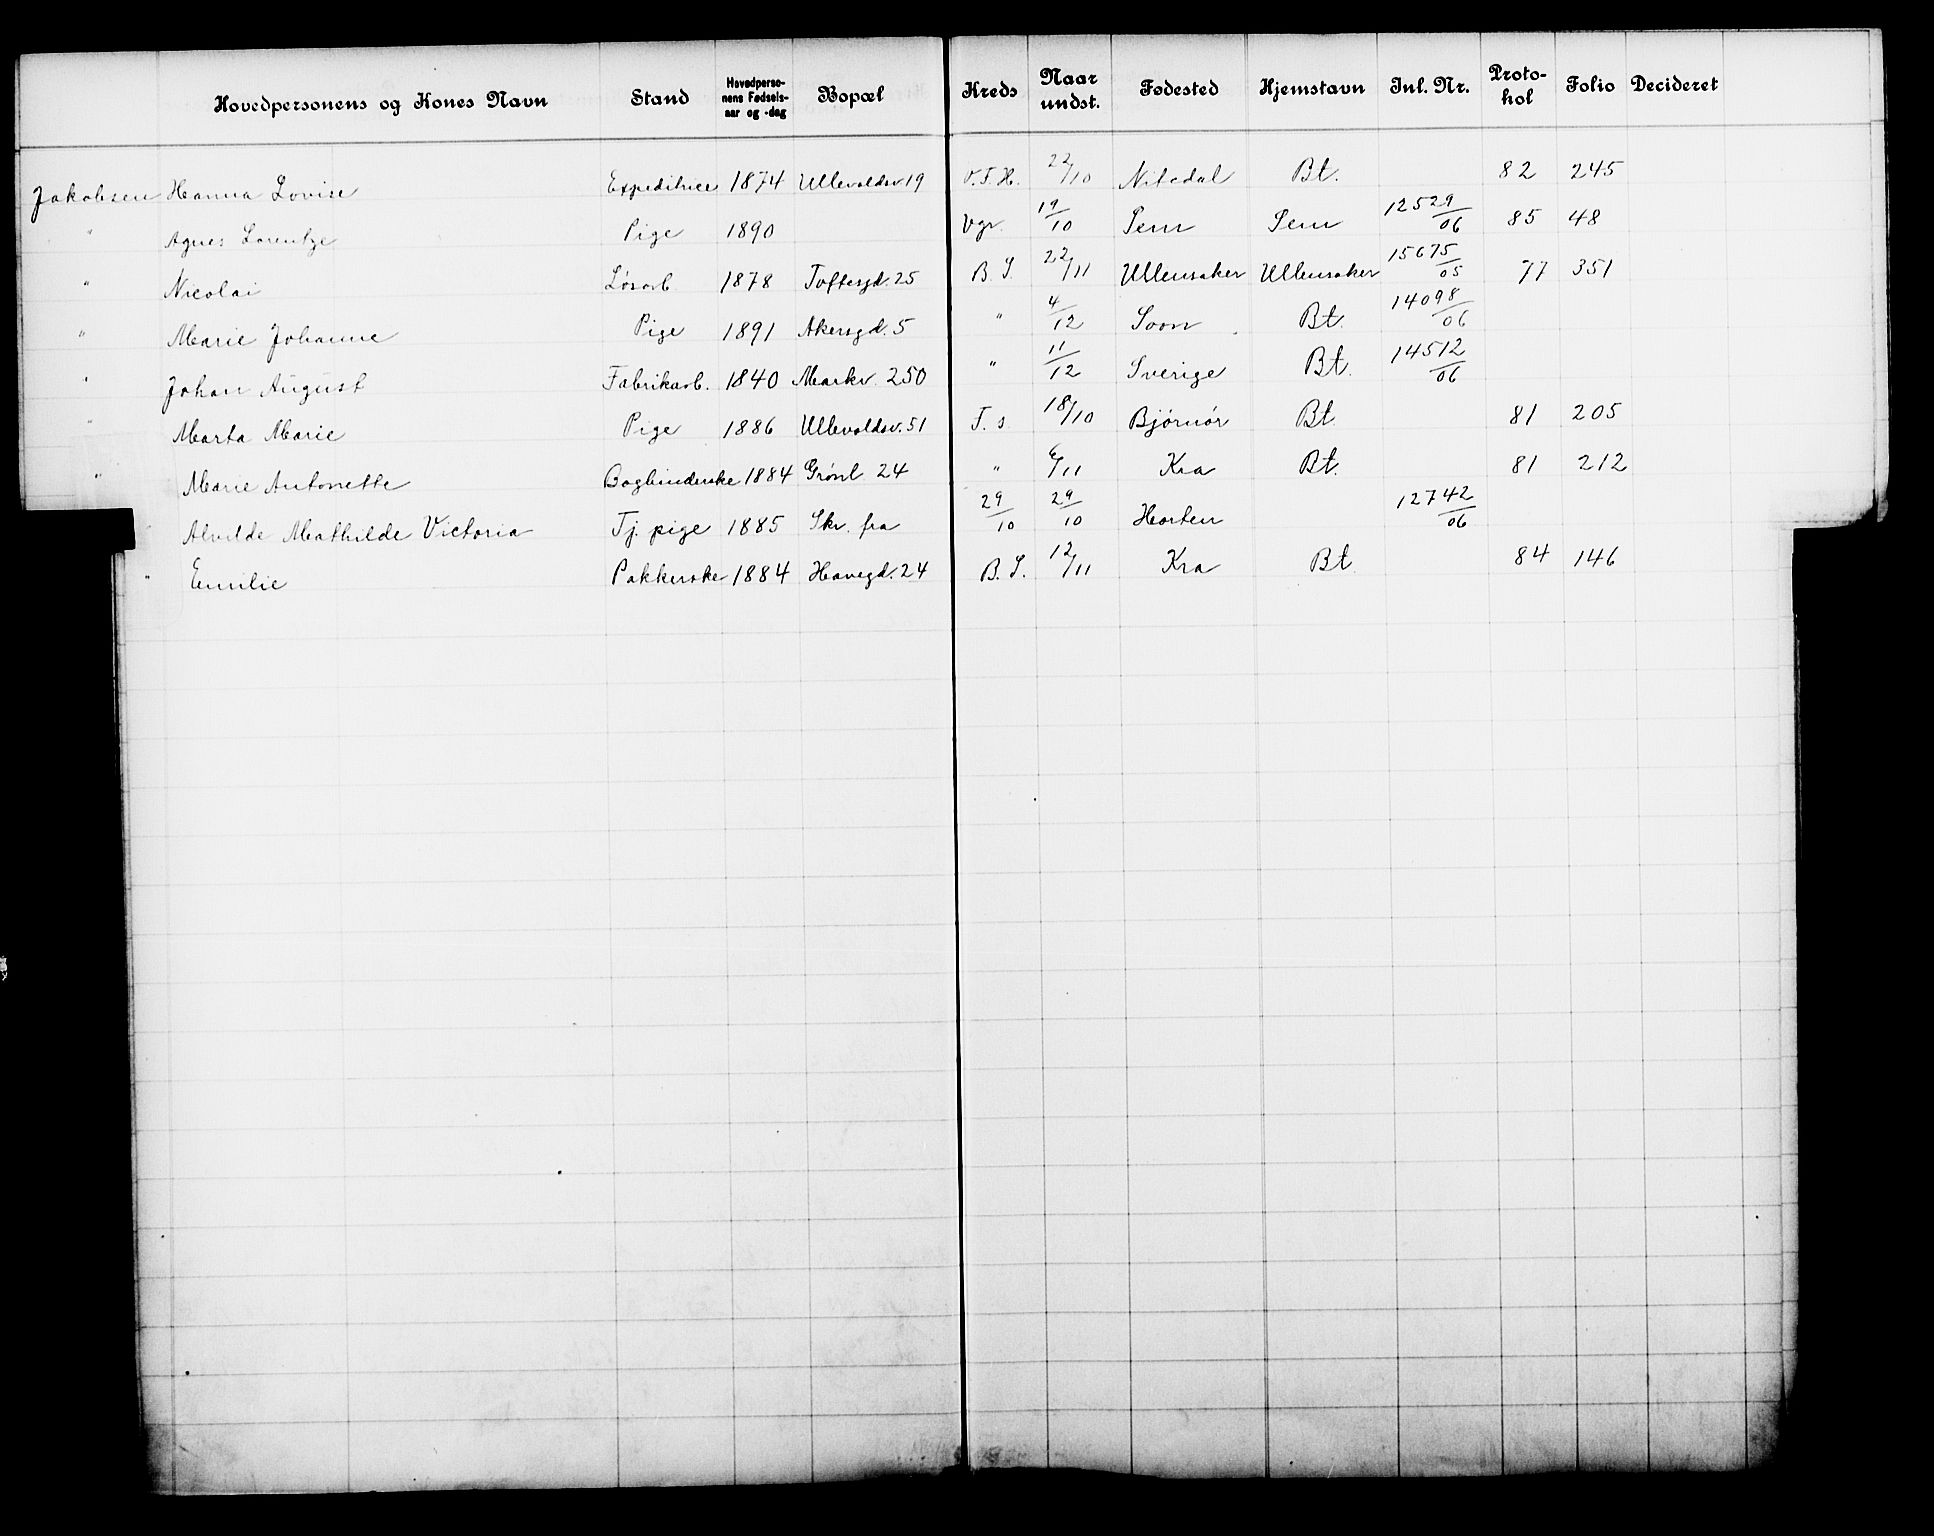 Hovedpersonens og Kones Navn Stand Hovedpersonens Fødselsaar og -dag Bopæl Kreds Naar undst. Fødested Hjemstavn Inl. Nr. Protokol Folio Decideret
Jakobsen Hanna Lovise Expeditrice 1874 Ullevoldsv 19 V.F.H. 22/10 Nitedal Bt. 82 245
" Agnes Lorentze Pige 1890 Vgr. 19/10 Sem Sem 12529/06 85 48
" Nicolai Løsarb. 1878 Toftesgd. 25 B. S. 22/11 Ullensaker Ullensaker 15675/05 77 351
" Marie Johanne Pige 1891 Akersgd. 5 " 4/12 Soon Bt. 14098/06
" Johan August Fabrikarb. 1840 Markv. 250 " 11/12 Sverige Bt. 14512/06
" Marta Marie Pige 1886 Ullevoldsv. 51 F. s. 18/10 Bjørnør Bt. 81 205
" Marie Antonette Bogbinderske 1884 Grønl. 24 " 6/11 Kra Bt. 81 212
" Alvilde Mathilde Victoria Tj. pige 1885 Skr. fra 29/10 29/10 Horten 12742/06
" Emilie Pakkerske 1884 Havegd. 24 B. S. 12/11 Kra Bt 84 146